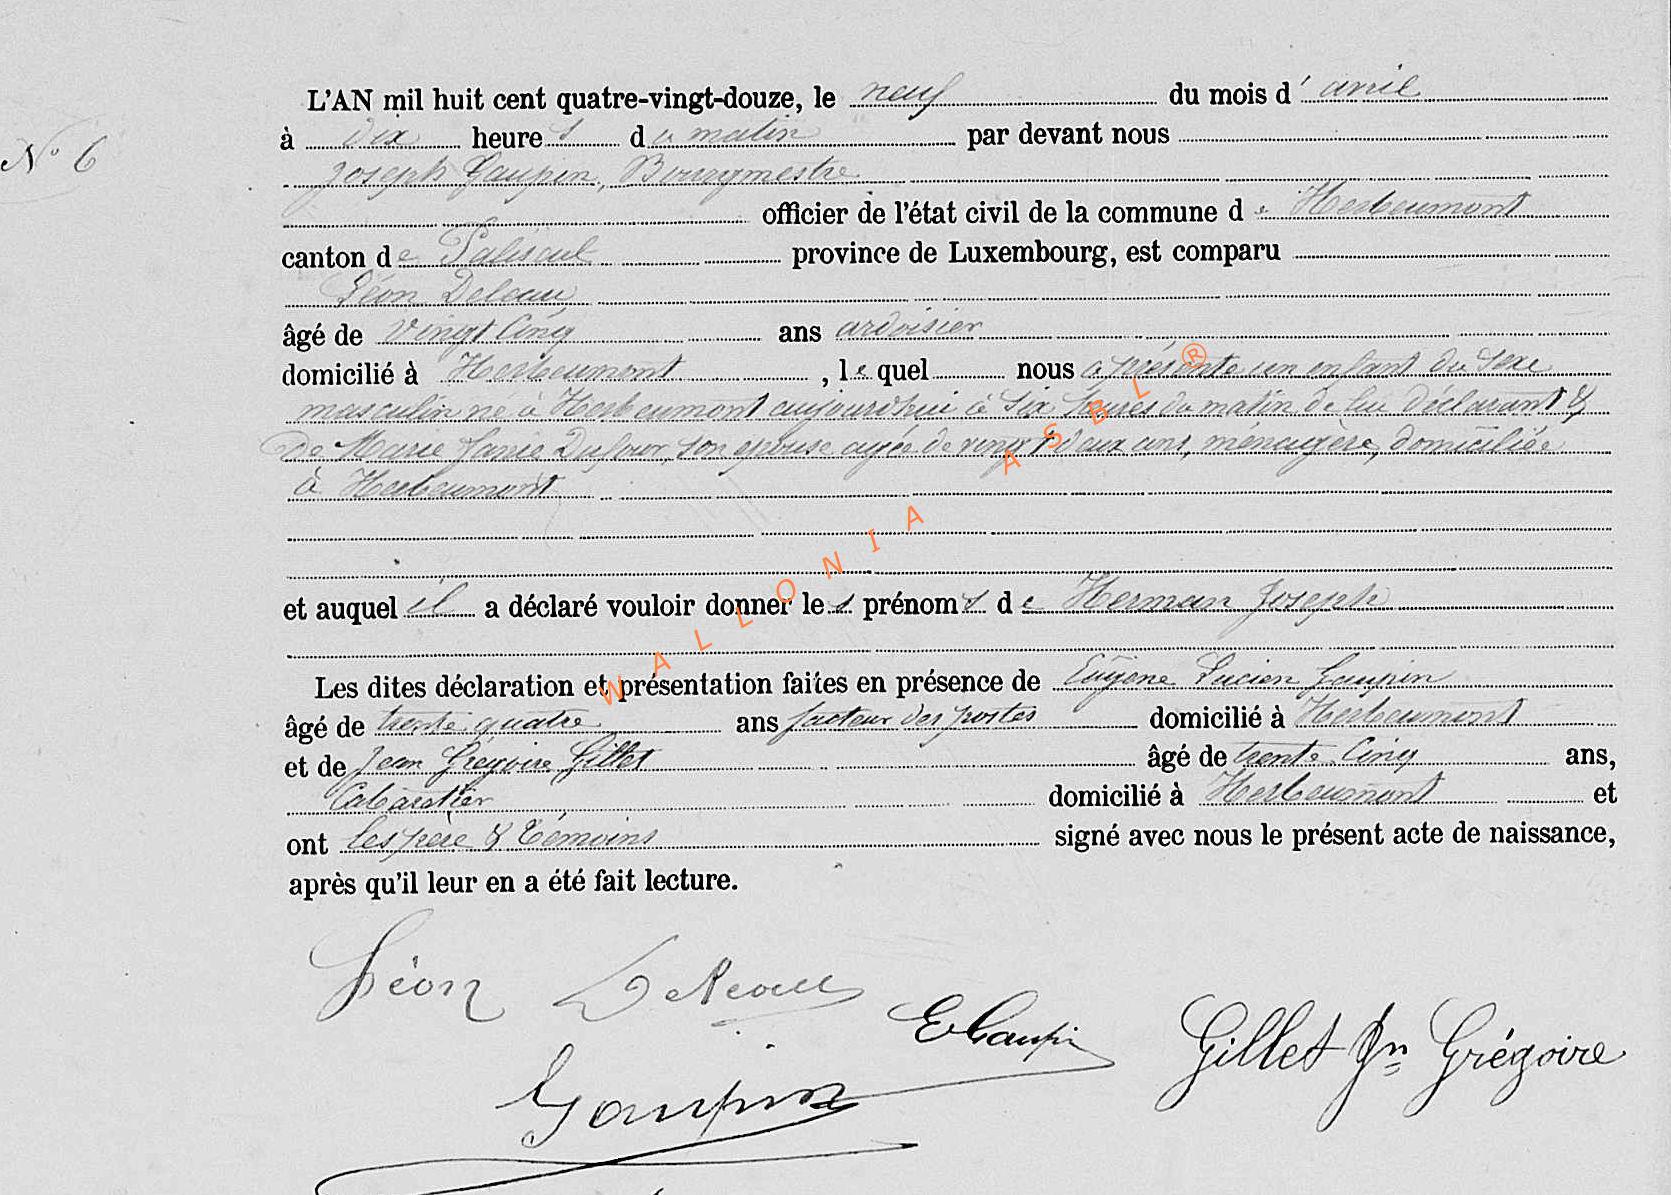 L'AN mil huit cent quatre-vingt-douze, le neuf du mois d' avril
N° 6
à dix heures du matin par devant nous
Joseph Gaupin, Bourgmestre
officier de l'état civil de la commune de Herbeumont
canton de Paliseul province de Luxembourg, est comparu
Léon Deleau,
âgé de vingt cinq ans ardoisier
domicilié à Herbeumont, lequel nous a présenté un enfant du sexe
masculin né à Herbeumont aujourd'hui à six heures du matin de lui déclarant &
de Marie Dufour, son épouse agée de vingt deux ans, ménagère, domiciliée
à Herbeumont
et auquel il a déclaré vouloir donner les prénoms de Herman Joseph
Les dites déclaration et présentation faites en présence de Eugène Lucien Gaupin
âgé de trente quatre ans facteur des postes domicilié à Herbeumont
et de Jean Grégoire Gillet âgé de trente cinq ans,
Cabaretier domicilié à Herbeumont et
ont les père & témoins signé avec nous le présent acte de naissance,
après qu'il leur en a été fait lecture.
Léon Deleau
E Gaupin
Gillet Jn Grégoire
Gaupin
WALLONIA ASBL ®